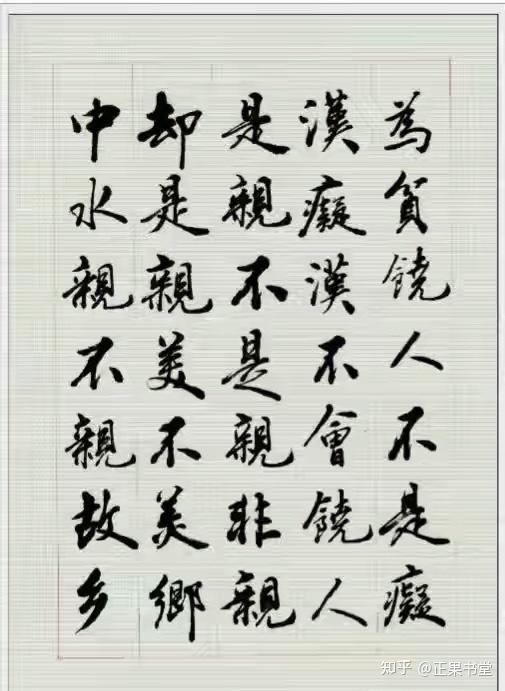 為貧饒人不是癡
漢癡漢不會饒人
是親不是親非親
却是親美不美鄉
中水親不親故乡
知乎 @正果书堂